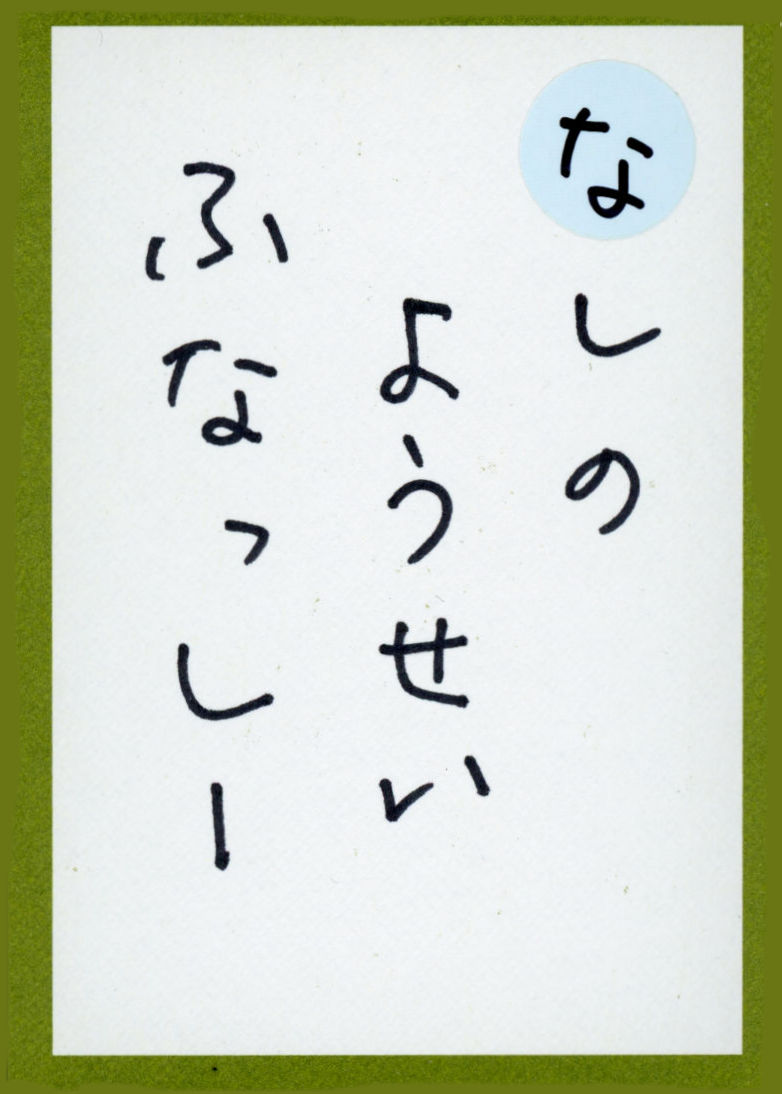 なしの
ようせい
ふなっしー